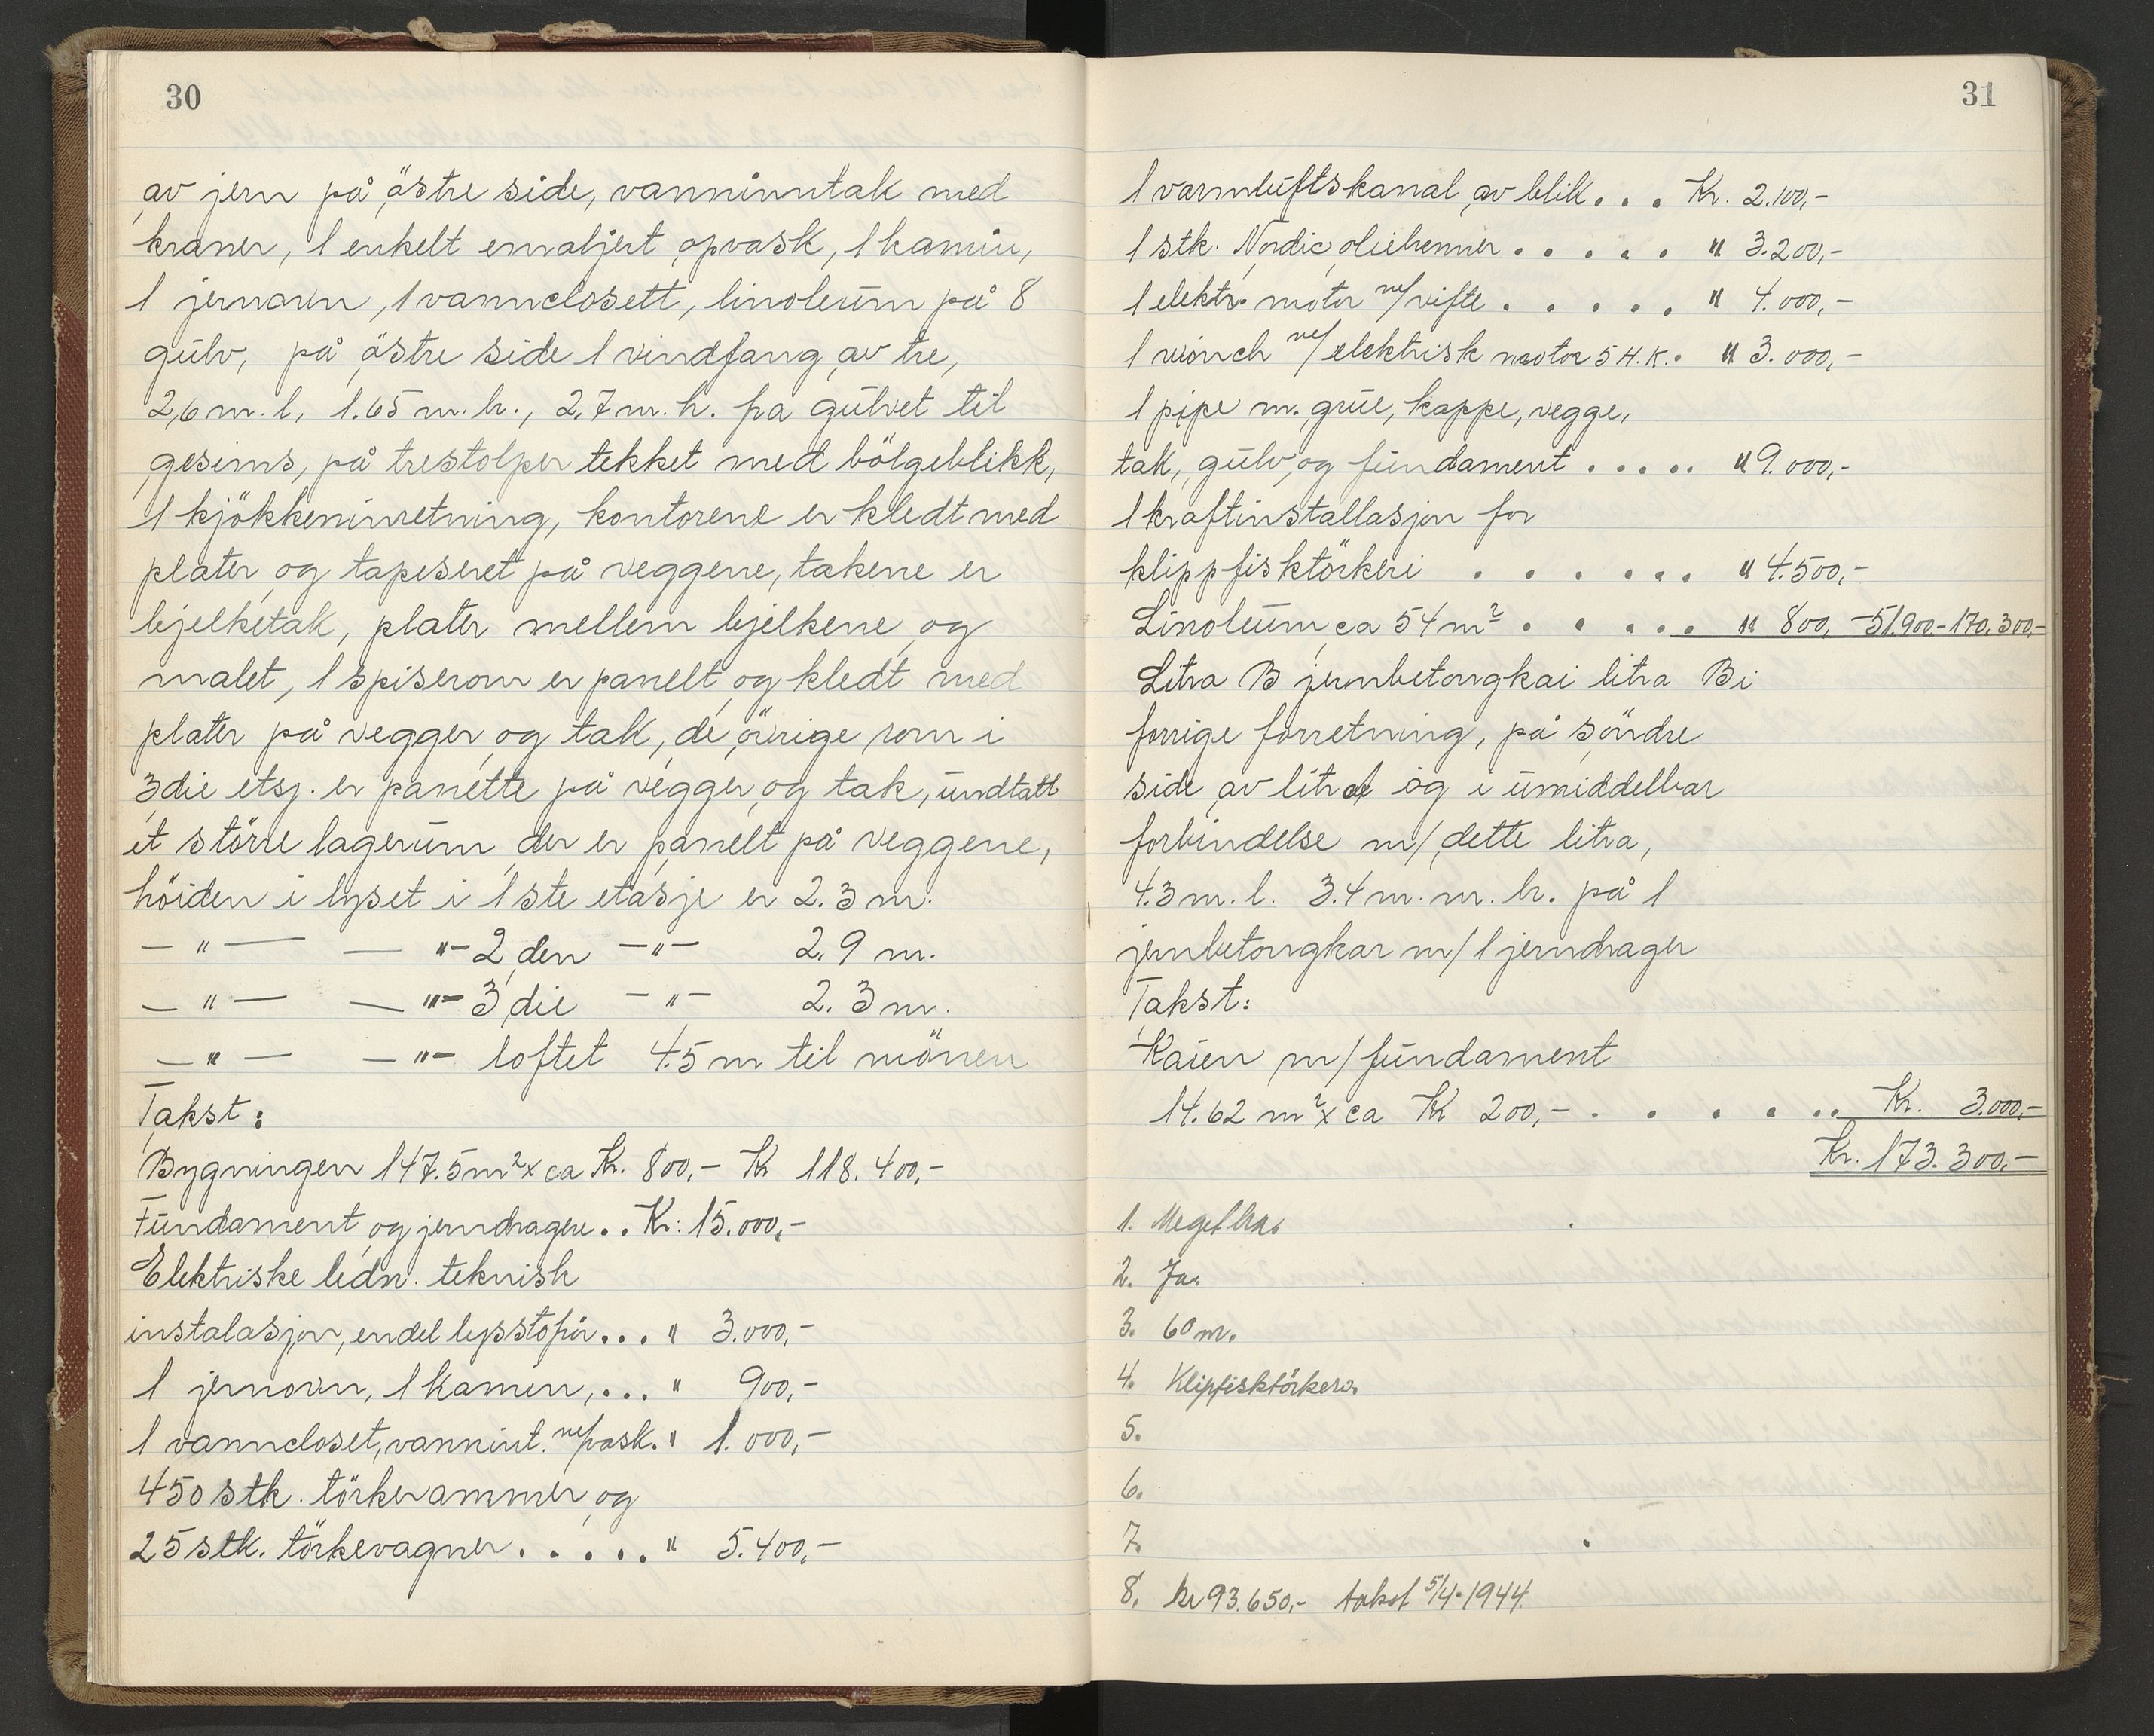 30
av jern på östre side, vanninntak med
kraner, 1 enkelt emaljert opvask, 1 kamin,
1 jernovn, 1 vannclosett, linoleum på 8
gulv, på östre side 1 vindfang av tre,
2,6 m. l, 1.65 m. br., 2.7 m. h. fra gulvet til
gesims, på trestolper tekket med bölgeblikk,
1 kjökkeninretning, kontorene er kledt med
plater og tapeseret på veggene, takene er
bjelketak, plater mellem bjelkene og
malet, 1 spiserom er panelt og kledt med
plater på vegger og tak, de övrige rom i
3die etsj. er panelte på vegger og tak, undtatt
et större lagerum der er panelt på veggene,
höiden i lyset i 1ste etasje er 2.3 m.
— " — — " - 2 den - " - 2.9 m.
— " — — " - 3 die - " - 2.3 m.
— " — — " - loftet 4.5 m til mönen
Takst:
Bygningen 147.5 m² x ca Kr. 800,- Kr 118.400,-
Fundament og jerndragere.. Kr: 15.000,-
Elektriske ledn. teknisk
instalasjon, endel lysstofrör... " 3.000,-
1 jernovn, 1 Kamin,... " 900,-
1 vanncloset, vannint. m/vask. " 1.000,-
450 stk. törkerammer og
25 stk. törkevagner..... " 5.400,-
31
1 varmluftskanal av blik... Kr. 2.100,-
1 stk. Nordic oliebrenner..... " 3.200,-
1 elektr. motor m/vifte..... " 4.000,-
1 winch m/elektrisk motor 5 H.K. " 3.000,-
1 pipe m. grue, kappe, vegge,
tak, gulv og fundament..... " 9.000,-
1 kraftinstallasjon for
klippfisktörkeri...... " 4.500,-
Linoleum ca 54 m²..... " 800,- 51.900- 170.300,-
Litra B jernbetongkai litra B i
forrige forretning, på söndre
side av litra og i umiddelbar
forbindelse m/ dette litra,
4.3 m. l. 3.4 m. m. br. på 1
jernbetongkar m/ 1 jerndrager
Takst:
Kaien m/ fundament
14.62 m² x ca Kr 200,-...... Kr. 3.000,-
Kr. 173.300,-
1. Meget bra.
2. Ja.
3. 60 m.
4. Klipfisktörkeri.
5.
6.
7.
8. kr 93.650,- takst 5/4-1944.